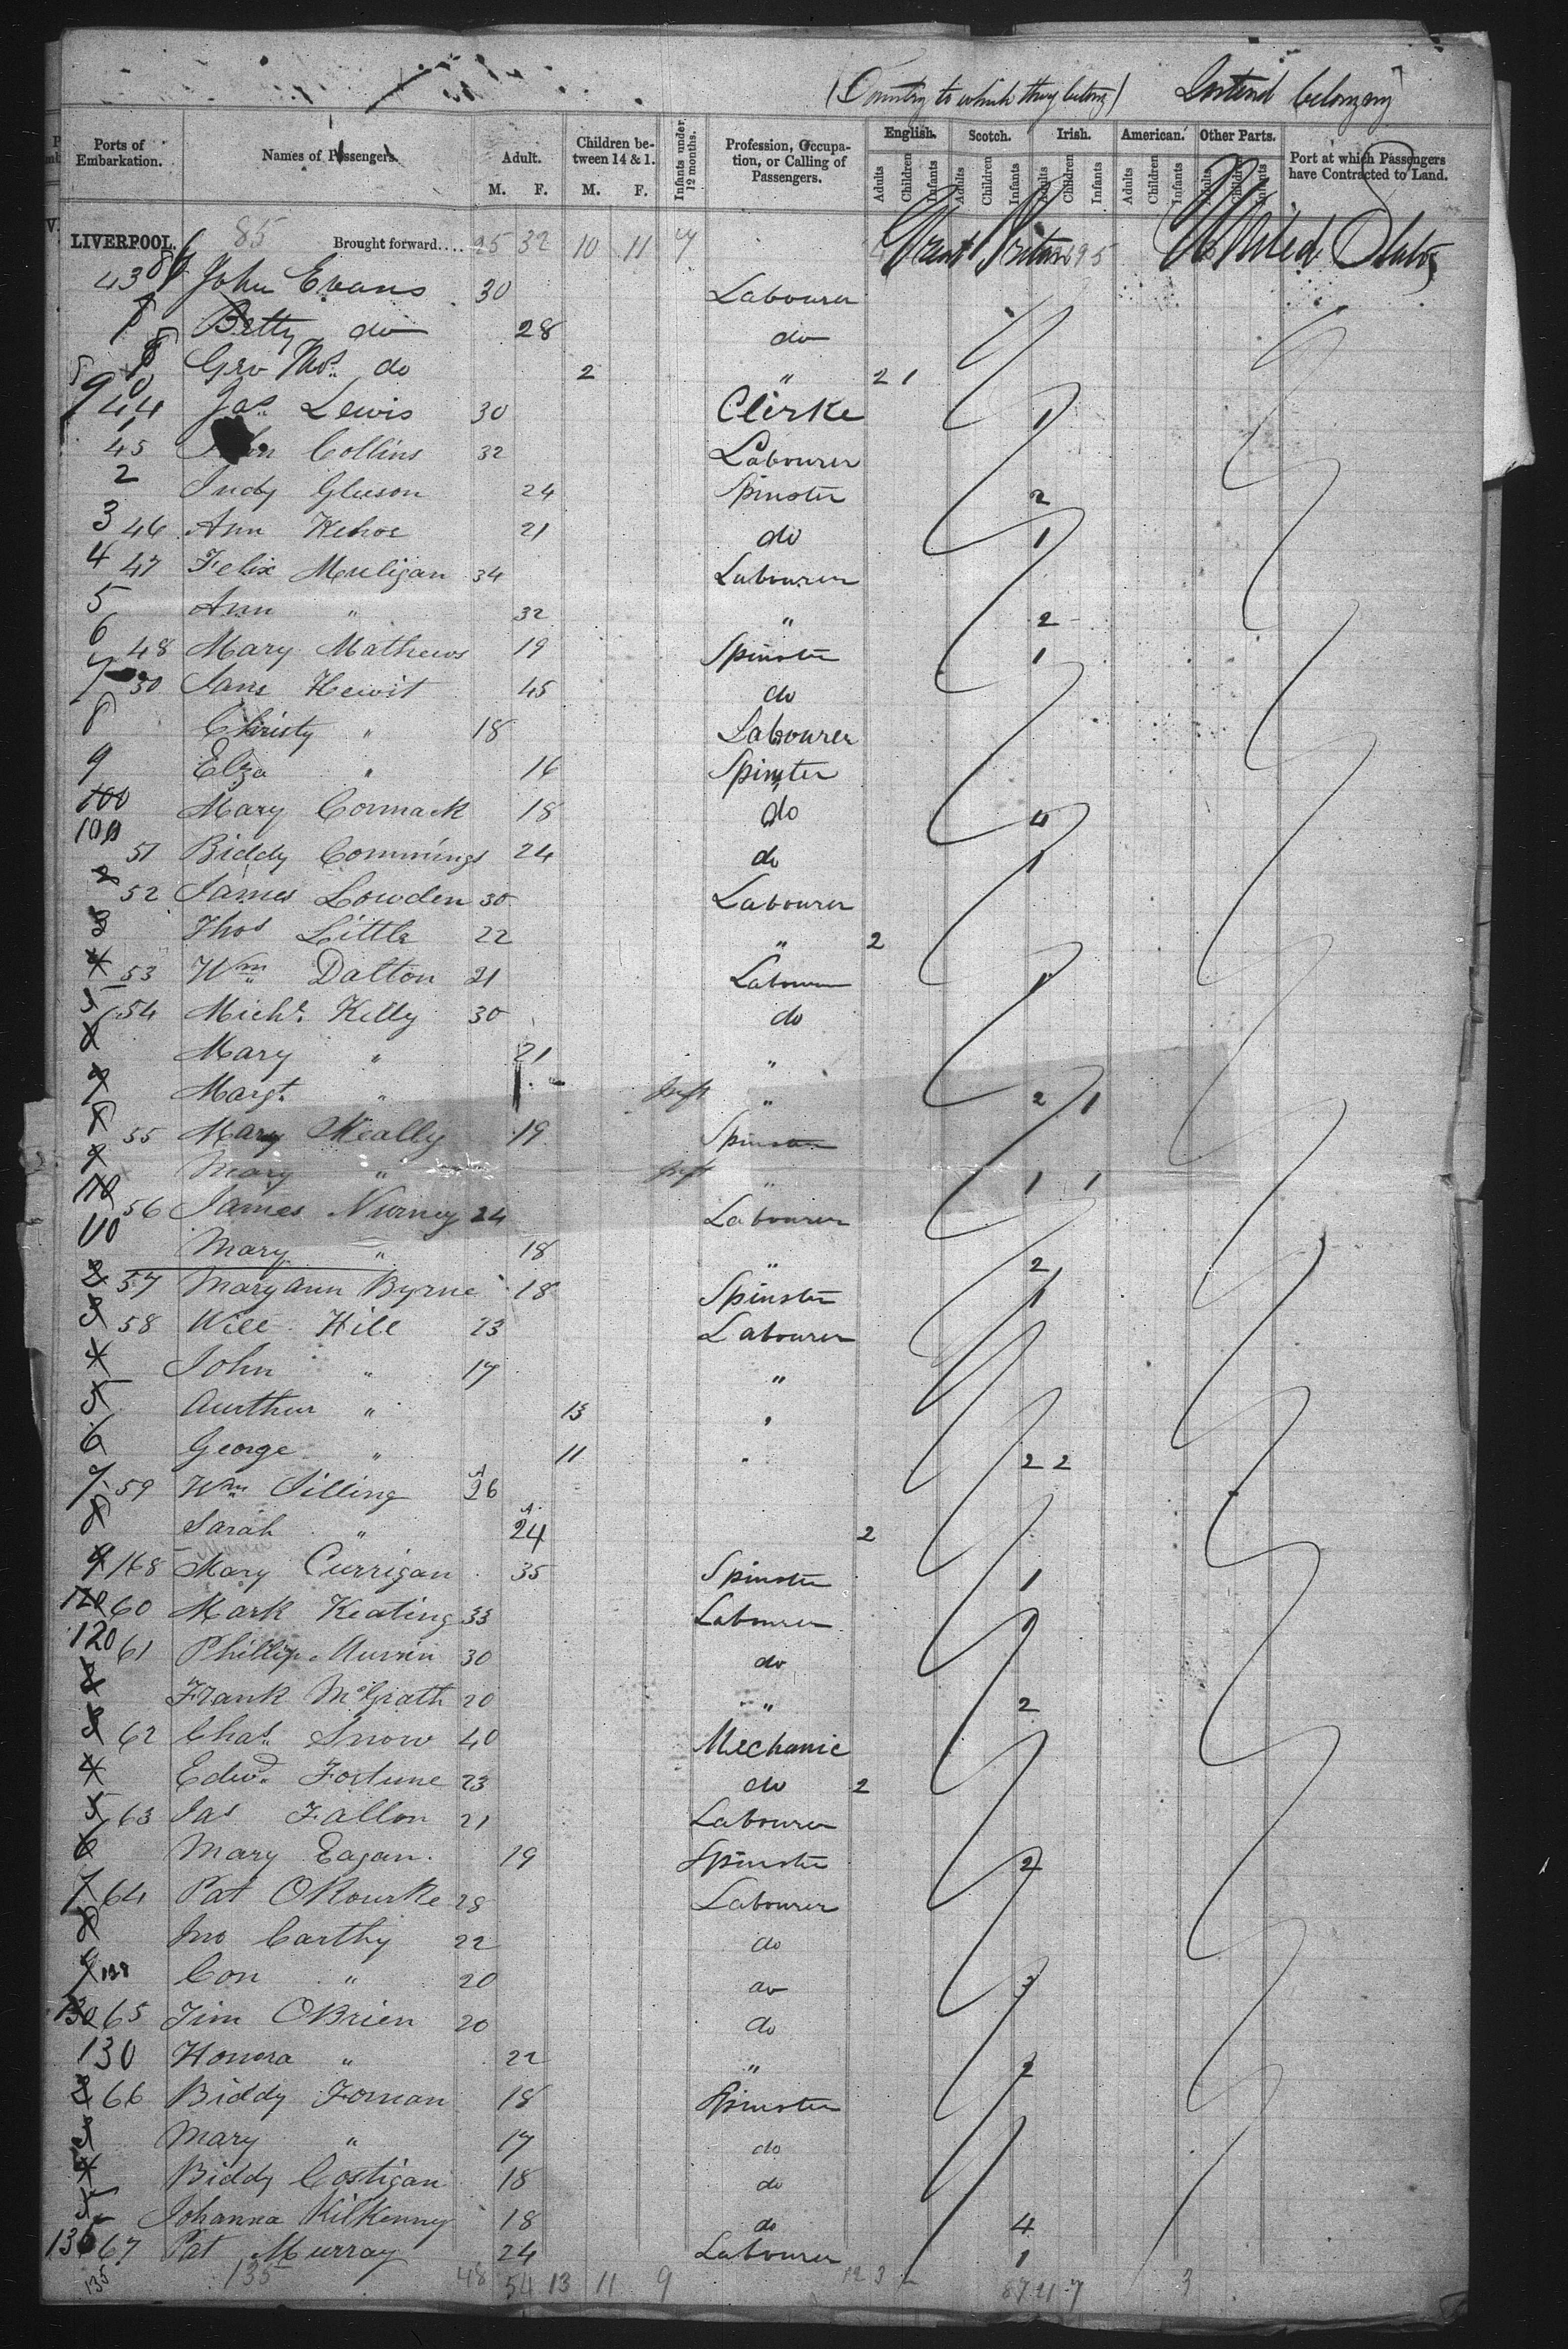 (Country to which they belong) Intend belonging
Ports of Embarkation. Names of Passengers. Adult. M. F. Children between 14 & 1. M. F. Infants under 12 months. Profession, Occupation, or Calling of Passengers. English. Adults Children Infants Scotch. Adults Children Infants Irish. Adults Children Infants American. Adults Children Infants Other Parts. Adults Children Infants Port at which Passengers have Contracted to Land.
LIVERPOOL. 85 Brought forward.... 25 32 10 11 7 Great Britain United States
43 John Evans 30 Labourer
Betty do 28 do
Geo Thos. do 2 " 2 1
44 Jas. Lewis 30 Clerke 1
45 Collins 32 Labourer
2 Judy Gleeson 24 Spinster 2
3 46 Ann Kehoe 21 do 1
4 47 Felix Muligan 34 Labourer
5 Ann " 32 " 2
6 48 Mary Mathews 19 Spinster 1
7 50 Jane Hewit 45 do
8 Christy " 18 Labourer
9 Eliza " 16 Spinster
100 Mary Cormack 18 do 4
100 51 Biddy Commings 24 do 1
2 52 James Lowden 30 Labourer
3 Thos Little 22 " 2
4 53 Wm Dalton 21 Labourer 1
5 54 Michl. Kelly 30 do
6 Mary " 21 "
7 Margt. " Inft " 2 1
8 55 Mary Meally 19 Spinster
9 Mary " Inft " 1 1
110 56 James Nurney 24 Labourer
110 Mary " 18 " 2
2 57 Mary Ann Byrne 18 Spinster 1
3 58 Will Hill 23 Labourer
4 John " 17 "
5 Aurthur " 13 "
6 George " 11 " 2 2
7 59 Wm Silling 26
8 Sarah " 24 2
9 168 Mary Currigan 35 Spinster 1
120 60 Mark Keating 33 Labourer 1
120 61 Phillip 30 do
2 Frank McGrath 20 " 2
3 62 Chas. Snow 40 Mechanic
4 Edwd. Fortune 23 do 2
5 63 Jas Fallon 21 Labourer
6 Mary Eagan 19 Spinster 2
7 64 Pat ORourke 28 Labourer
8 Jno Carthy 22 do
9 Con " 20 do 3
130 65 Jim OBrien 20 do
130 Honora " 22 " 2
2 66 Biddy Fornan 18 Spinster
3 Mary " 17 do
4 Biddy Costigan 18 do
5 Johanna Kilkenny 18 do 4
67 Pat Murray 24 Labourer 1
135 135 48 54 13 11 9 12 3 87 11 7 3